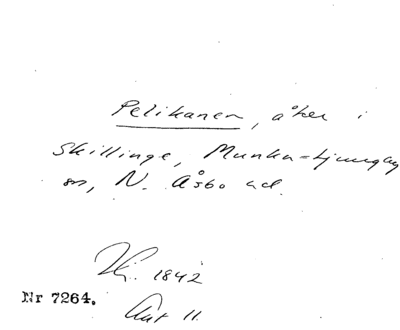 Pelikanen, åker i
Skillinge, Munka-Ljungby
sn, N. Åsbo hd.
1842
Nr 7264.
Akt 11.